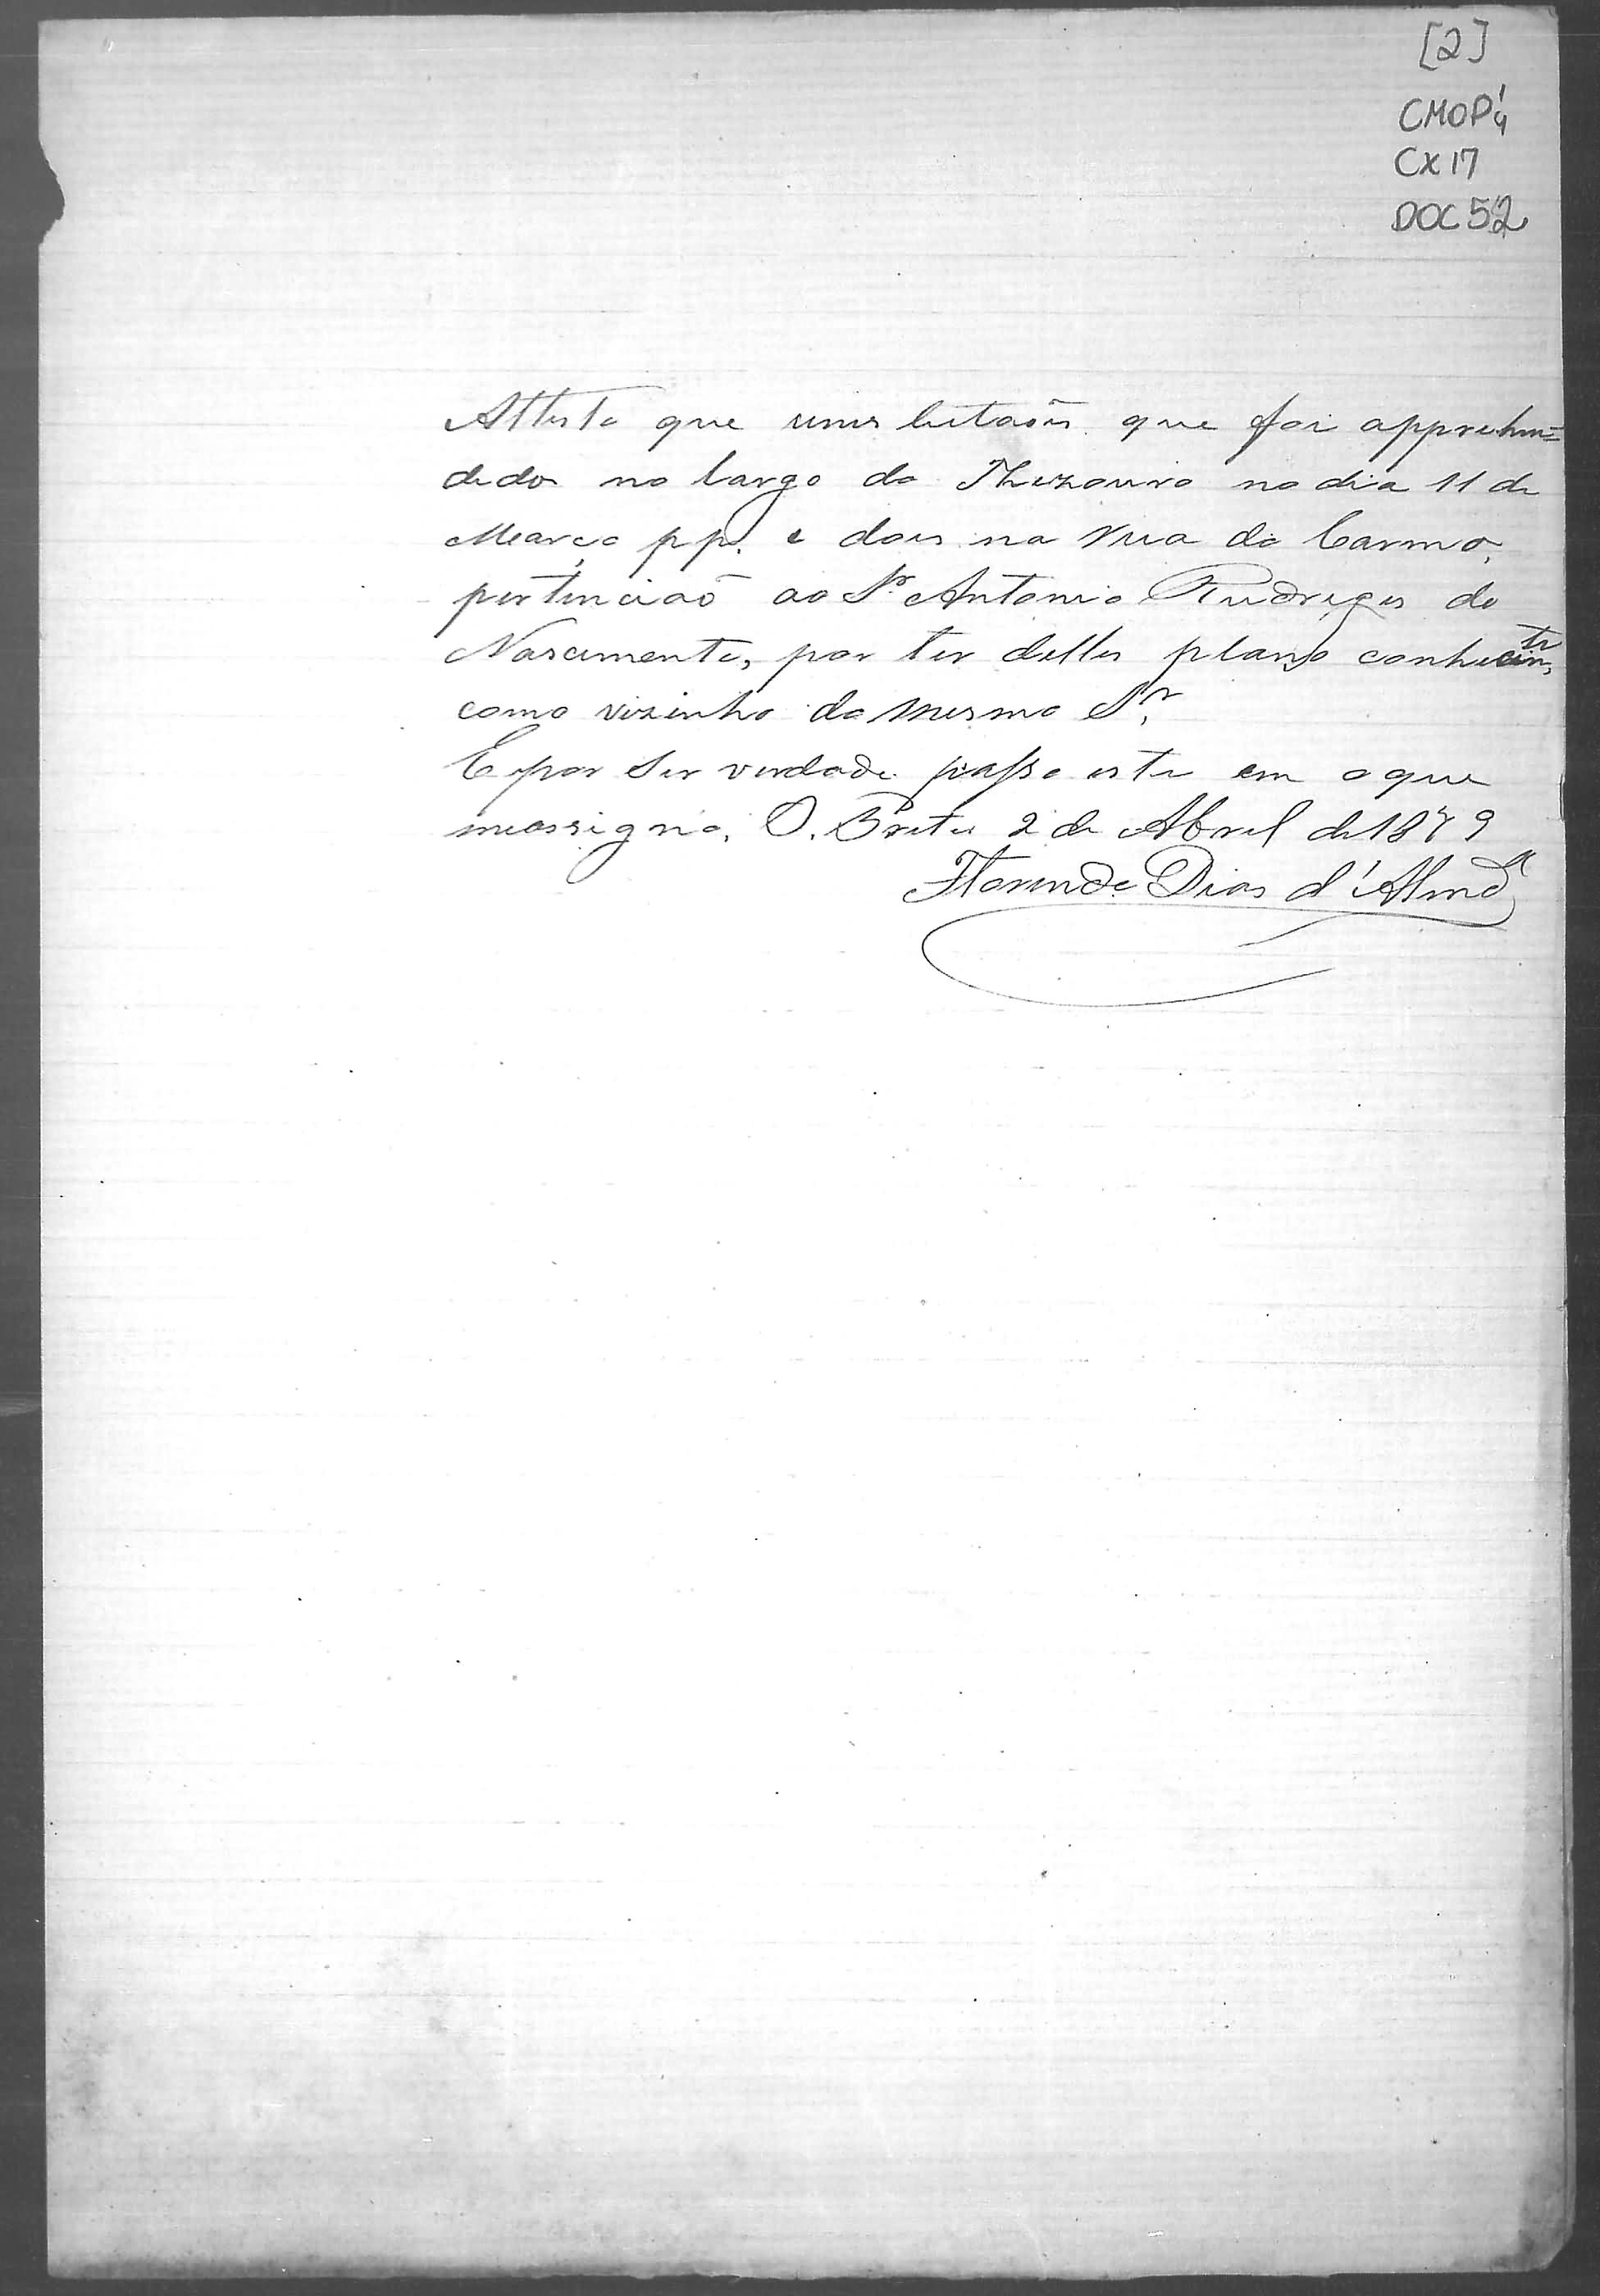 [2]
CMOP 1/4
CX 17
DOC 52
Attesto que uns leitoẽs que foi apprehen=
dedos no largo do Thezouro no dia 11 de
Março pp. e dois na rua do Carmo,
pertenciaõ ao Sr. Antonio Rudrigues do
Nascimento, por ter delles plano conhecimto,
como vizinho do mesmo Sr.
E por ser verdade passo este em o que
me assigno. O. Preto 2 de Abril de 1879
Dias d'Almda